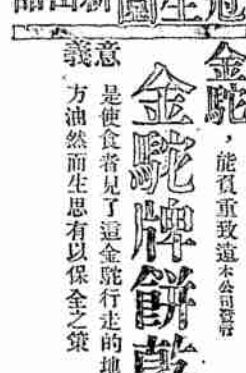 冠生園新出品
金駝，能負重致遠本公司營業
金駝牌餅乾
意義
是使食者見了這金駝行走的地
方油然而生思有以保全之策